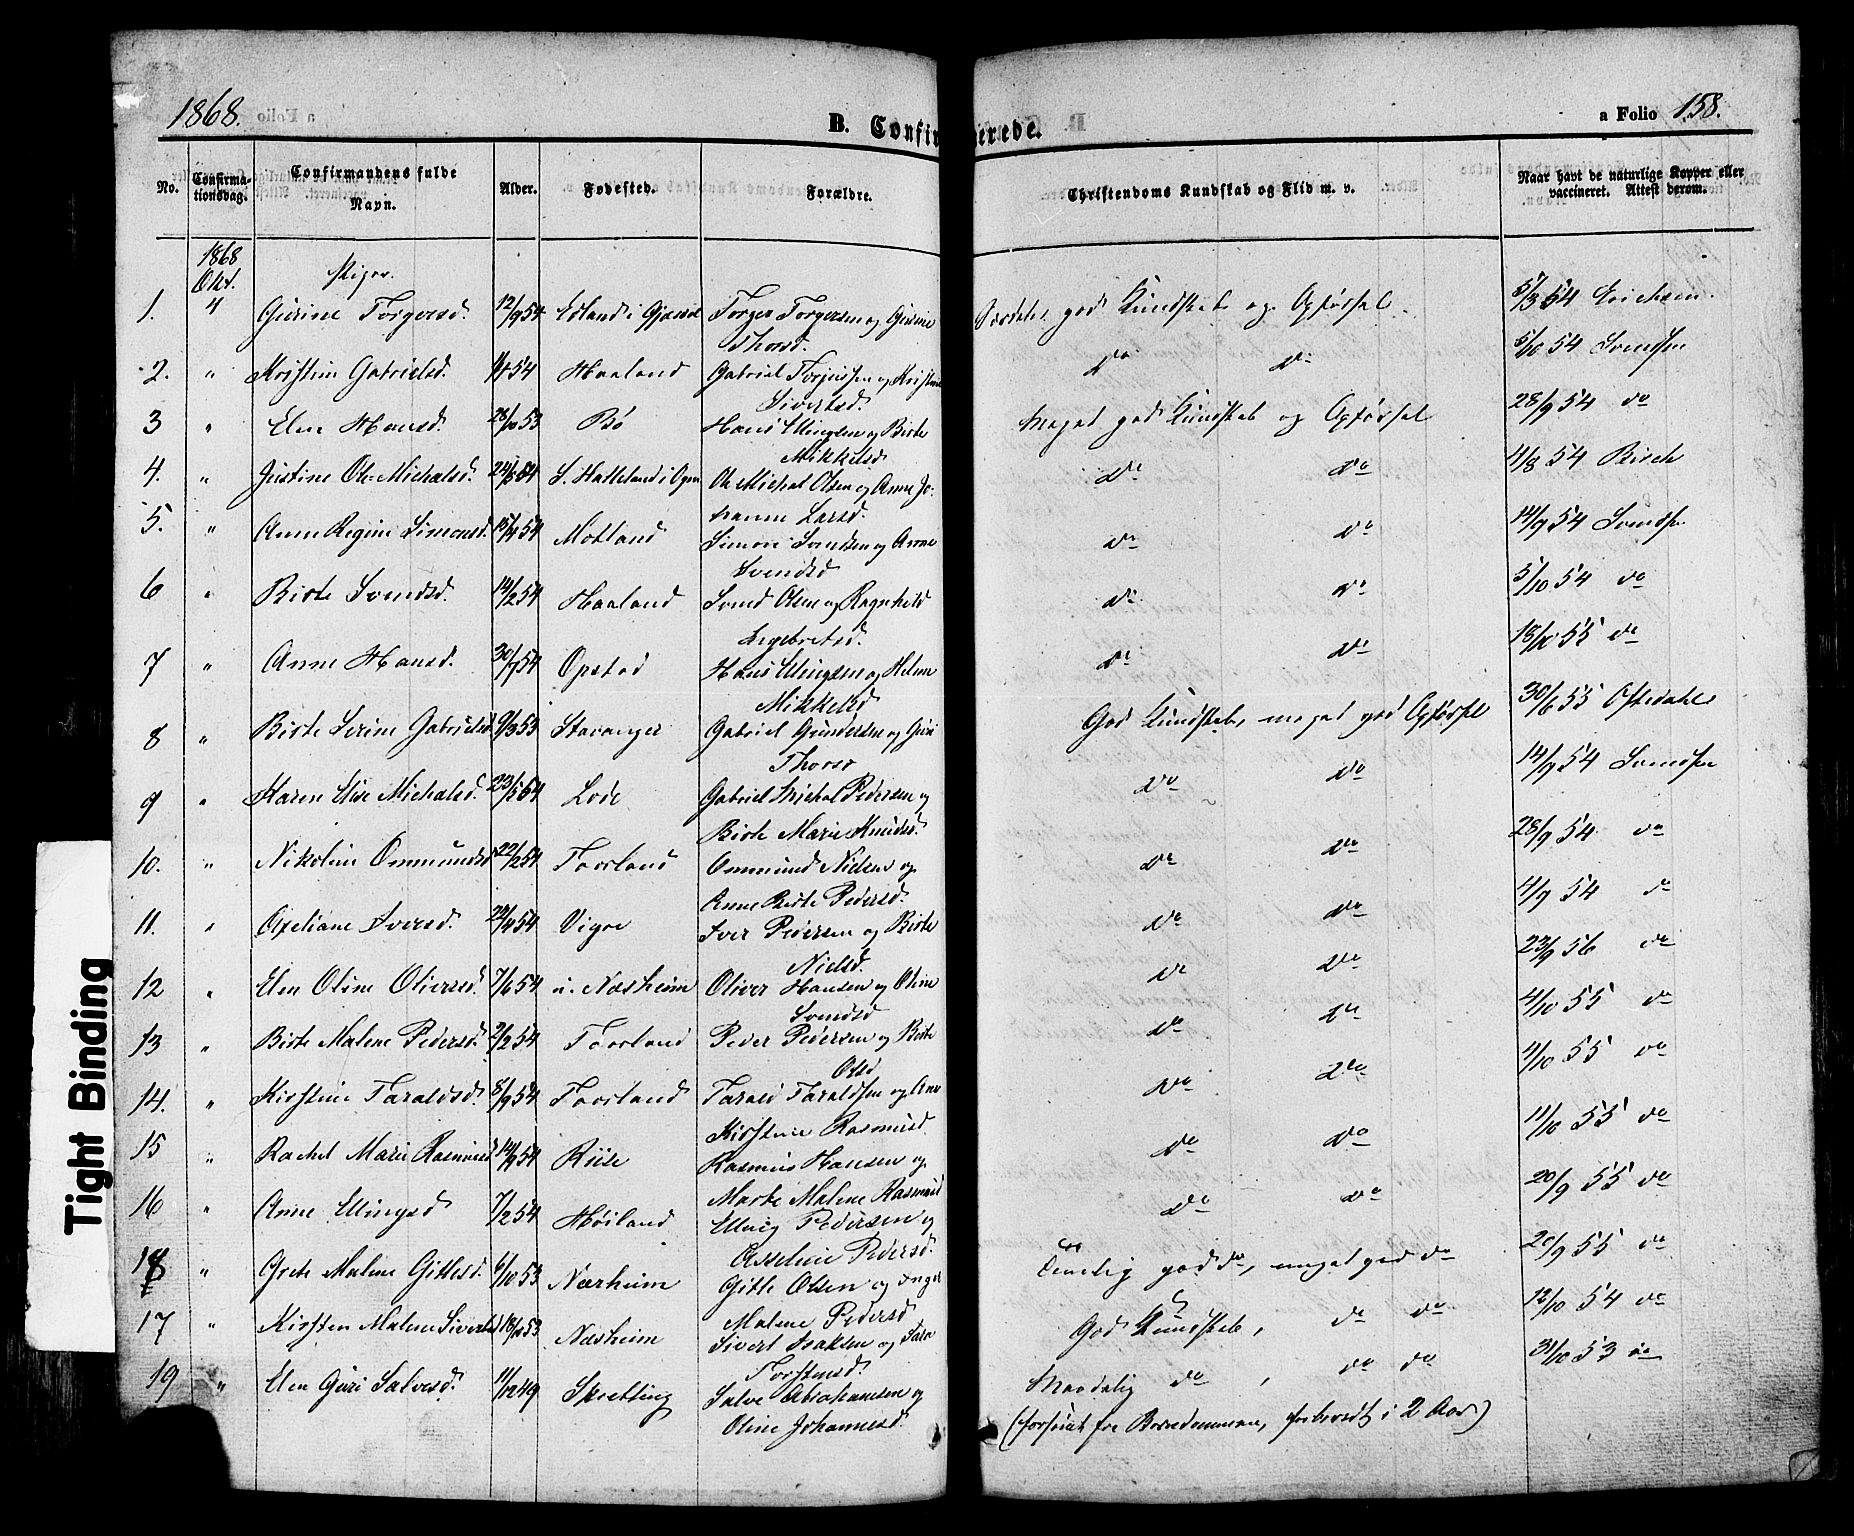 1868.
B. Confirmerede.
a Folio 158.
No. Confirmationsdag. Confirmandens fulde Navn. Alder. Fødested. Forældre. Christendoms Kundskab og Flid m. v. Naar havt de naturlige Kopper eller vaccineret. Attest derom.
1868
Okt. Piger.
1. 4 Gurine Torgersd. 12/9 54 Torger Torgersen og Gurine Særdeles god Kundskab og Opførsel. 5/3 54 Erichsen.
Thorsd.
2. " Kristine Gabrielsd. 54 Haaland Gabriel Torjussen og Kristine do do 5/10 54 Svendsen
Sivertsd.
3 " Elen Hansd. 28/10 53 Bø Hans Ellingsen og Birte Meget god Kundskab og Opførsel 28/9 54 do
Mikkelsd
4. " Justine Ole-Michalsd. Ole Michal Olsen og Anne Jo- do do 11/8 54
hanne Larsd.
5. " Anne Regine Simonsd. Motland Simon Svendsen og Anne do do 14/9 54 Svendsen
Svendsd
6 " Birte Svendsd. 14/2 54 Haaland Svend Olsen og Ragnhild do do 5/10 54 do
Ingebretsd.
7 " Anne Hansd. 30/7 54 Opstad Hans Ellingsen og Helene do do 18/10 55 do
Mikkelsd
8 " Birte Serine Gabrielsd 9/3 53 Stavanger Gabriel Gundersen og Guri God Kundskab, meget god Opførsel 30/6 55 Oftedahl
Thorsd
9 " Karen Elise Michalsd. Lode Gabriel Michal Pedersen og do do 14/9 54 Svendsen
Birte Marie Knudsd.
10. " Nikoline Ommundsd 22/2 54 Torland Ommund Nielsen og do do 28/9 54 do
Anne Birte Pedersd.
11. " Axeliane Iversd. Vigre Iver Pedersen og Birte do do 4/9 54 do
Nielsd.
12 " Elen Oline Oliversd. 7/6 54 n. Nærheim Oliver Hansen og Oline do do 23/9 56 do
Svendsd
13 " Birte Malene Pedersd. 2/2 54 Torland Peder Pedersen og Birte do do 4/10 55 do
Olsd
14. " Kirstine Taraldsd. 8/9 54 Torland Tarald Taraldsen og Ane do do 11/10 55 do
Kirstine Rasmusd.
15 " Rachel Marie Rasmusd Riise Rasmus Hansen og do do 11/10 55 do
Marte Malene Rasmusd
16 " Anne Ellingsd 7/2 54 Høiland Elling Pedersen og do do 20/9 55 do
Asseline Pedersd.
18 " Grete Malene Gittlesd. 6/10 53 Nærheim Gitle Olsen og Inger Temelig god do, meget god do 20/9 55 do
Malene Pedersd
17 " Kirsten Malene Sivertsd Nærheim Sivert Isaksen og Tara God Kundskab, do do 12/10 54 do
Torstensd.
19 " Elen Guri Salvesd. 11/12 49 Skretting Salve Abrahamsen og Maadelig do, do do 31/10 53 do
Oline Johannesd.
(forsømt fra Barndommen, forberedt i 2 Aar)
Tight Binding